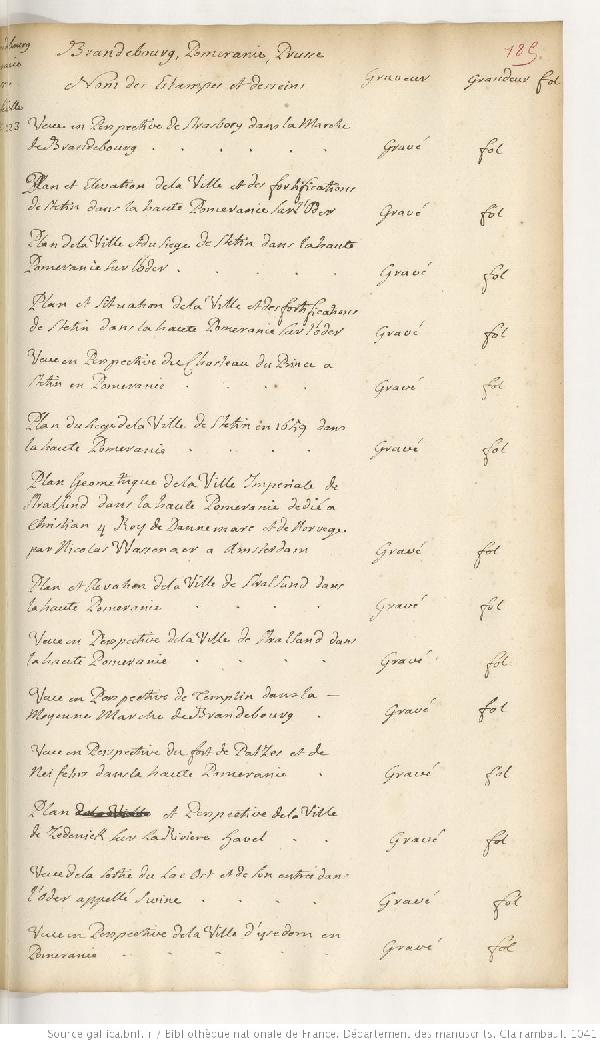 Brandebourg, Pomeranie, Prusse
185.
Nom des Estampes et desseins Graveur Grandeur fol
Veue en Perspective de Strasborg dans la Marche
de Brandebourg . . . . . Gravé fol
Plan et Elevation de la Ville et des fortifications
de Stetin dans la haute Pomeranie sur l'Oder Gravé fol
Plan de la Ville et du siege de Stetin dans la haute
Pomeranie sur l'oder . . . . Gravé fol
Plan et Situation de la Ville et des fortifications
de Stetin dans la haute Pomeranie sur l'oder Gravé fol
Veue en Perspective du Chasteau du Prince a
Stetin en Pomeranie . . . . Gravé fol
Plan du siege de la Ville de Stetin en 1659 dans
la haute Pomeranie . . . . Gravé fol
Plan Geometrique de la Ville Imperiale de
Stralsund dans la haute Pomeranie dedié a
Christian 4 Roy de Dannemarc et de Norvege
par Nicolas Wassenaer a Amsterdam Gravé fol
Plan et Elevation de la Ville de Stralsund dans
la haute Pomeranie . . . . Gravé fol
Veue en Perspective de la Ville de Stralsund dans
la haute Pomeranie . . . . Gravé fol
Veue en Perspective de Templin dans la –
Moyenne Marche de Brandebourg . Gravé fol
Veue en Perspective du fort de Patzes et de
dans la haute Pomeranie . Gravé fol
Plan de la Ville et Perspective de la Ville
de Zedenick sur la Riviere Havel . . Gravé fol
Veue de la sortie du Lac Ost et de son entrée dans
l'oder appellé Swine . . . . Gravé fol
Veue en Perspective de la Ville d'ysedom en
Pomeranie . . . . . Gravé fol
Source gallica.bnf.fr / Bibliothèque nationale de France. Département des manuscrits. Clairambault 1041